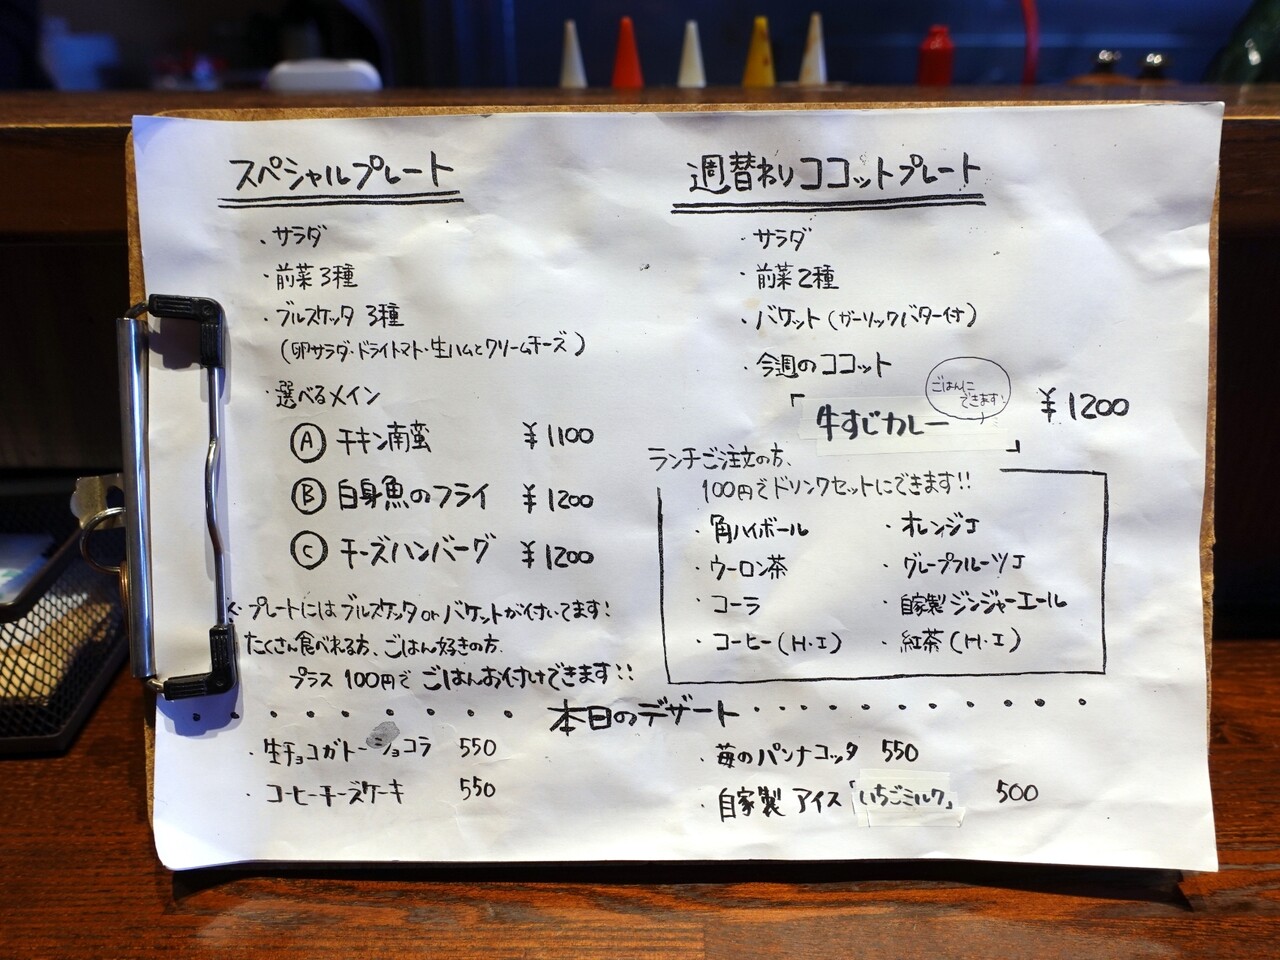 スペシャルプレート
・サラダ
・前菜3種
・ブルスケッタ 3種
(卵サラダ・ドライトマト・生ハムとクリームチーズ)
・選べるメイン
Ⓐ チキン南蛮 ¥1100
Ⓑ 白身魚のフライ ¥1200
Ⓒ チーズハンバーグ ¥1200
プレートにはブルスケッタorバケットが付いてます!
たくさん食べれる方、ごはん好きの方
プラス100円でごはんお付けできます!!
週替わりココットプレート
・サラダ
・前菜2種
・バケット(ガーリックバター付)
・今週のココット
「牛すじカレー」 ¥1200
ごはんに
できます!
ランチご注文の方、
100円でドリンクセットにできます!!
・角ハイボール ・オレンジJ
・ウーロン茶 ・グレープフルーツJ
・コーラ ・自家製ジンジャーエール
・コーヒー(H・I) ・紅茶(H・I)
本日のデザート
・生チョコガトーショコラ 550
・コーヒーチーズケーキ 550
・苺のパンナコッタ 550
・自家製アイス「いちごミルク」 500